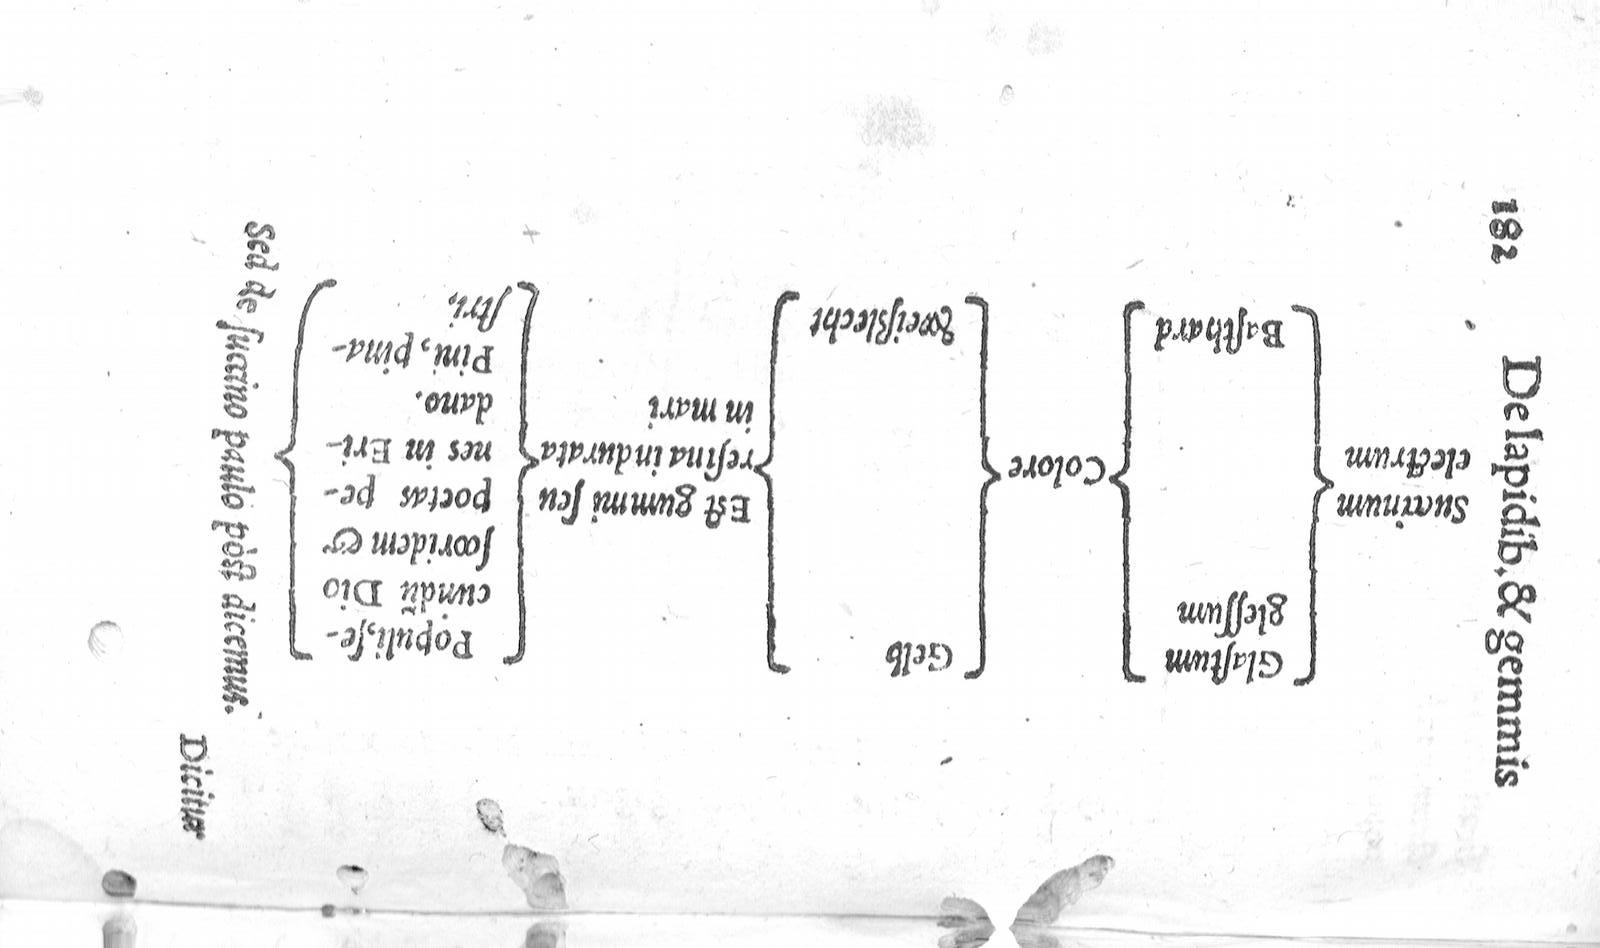 182 De lapidib. & gemmis
Succinum
electrum
Glaſtum
gleſſum
Baſthard
Colore
Gelb
Weiſslecht
Eſt gummi ſeu
reſina indurata
in mari
Populi, ſe-
cundũ Dio
ſcoridem &
poetas pe-
nes in Eri-
dano.
Pini, pina-
ſtri,
Sed de ſuccino paulò pòſt dicemus.
Dicitur